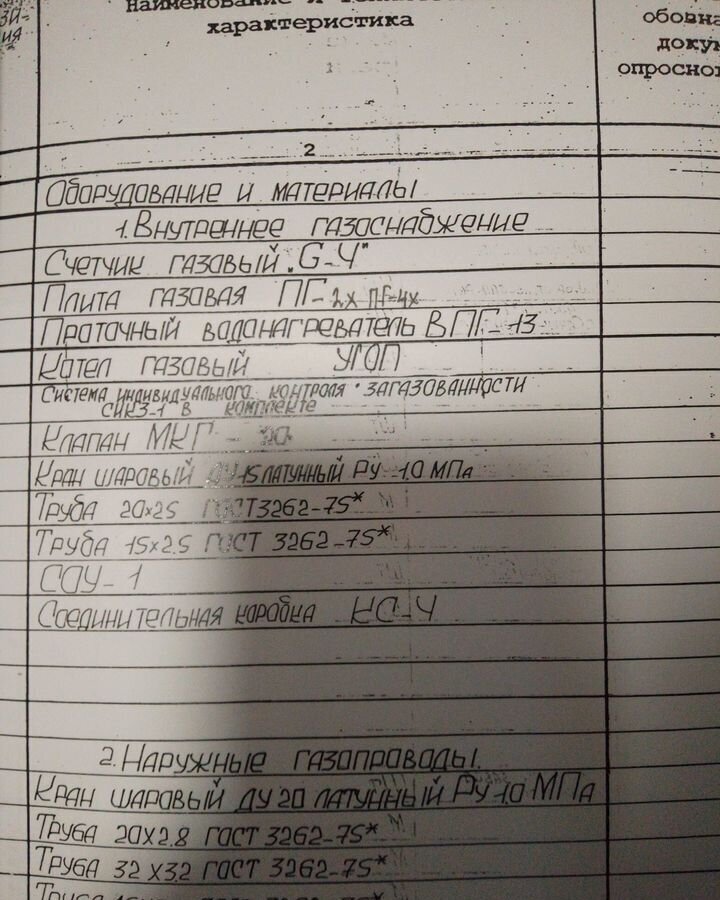 зи-
ия
наименование и
характеристика
обозна
докум
опросног
2
Оборудование и материалы
1. Внутреннее газоснабжение
Счетчик газовый „G-4"
Плита газовая ПГ-2х ПГ-4х
Праточный водонагреватель ВПГ-13
Котел газовый УГОП
Система индивидуального контроля загазованности
СИКЗ-1 в комплекте
Клапан МКГ-20
Кран шаровый ДУ 15 латунный Ру 1.0 МПа
Труба 20х25 ГОСТ 3262-75*
Труба 15х2.5 ГОСТ 3262-75*
СОУ-1
Соединительная коробка КС-4
2. Наружные газопроводы.
Кран шаровый ДУ 20 латунный Ру 1.0 МПа
Труба 20х2.8 ГОСТ 3262-75*
Труба 32х3.2 ГОСТ 3262-75*
Труба